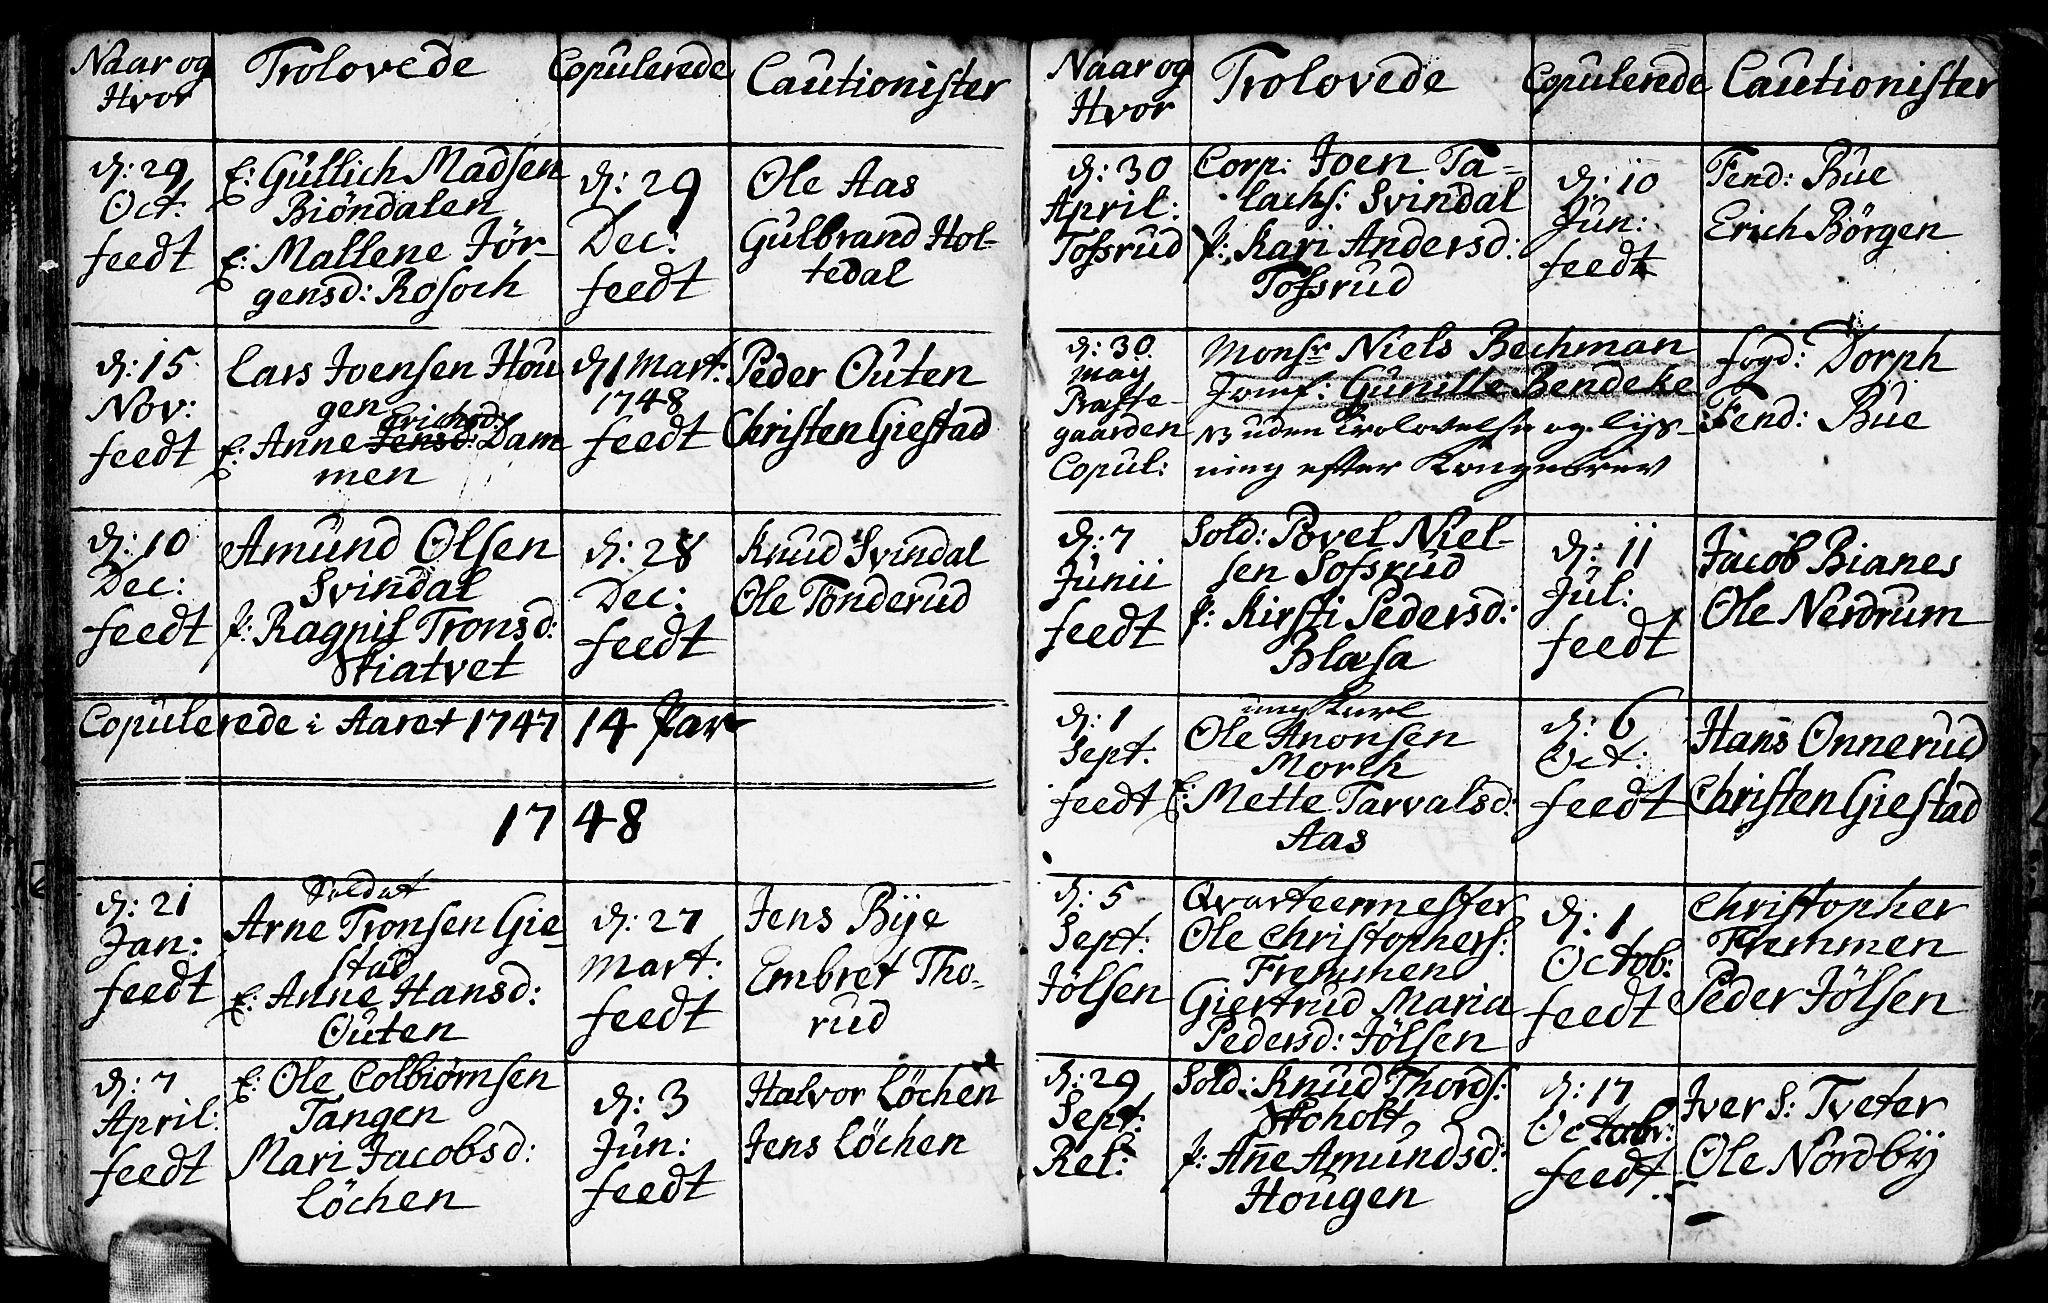 Naar og
Hvor
Trolovede
Copulerede
Cautionister
d: 29
Oct:
feedt
E: Gullich Madsen
Biöndalen
E: Mallene Jör-
gensd: Rosoch
d: 29
Dec:
feedt
Ole Aas
Gulbrand Hol-
tedal
d: 15
Nov:
feedt
Lars Joensen Hou
gen
Erichsd:
E: Anne Jensd: Dam
men
d 1 Mart:
1748
feedt
Peder Outen
Christen Giestad
d: 10
Dec:
feedt
Amund Olsen
Svindal
P: Ragnil Tronsd:
Skiatvet
d: 28
Dec:
feedt
Knud Svindal
Ole Tonderud
Copulerede i Aaret 1747 14 Par
1748
d: 21
Jan:
feedt
Soldat
Arne Tronsen Gie-
stad
E: Anne Hansd:
Outen
d: 27
Mart:
feedt
Jens Bije
Embret Tho-
rud
d: 7
April:
feedt
E: Ole Colbiörnsen
Tangen
Mari Jacobsd:
Löchen
d: 3
Jun:
feedt
Halvor Löchen
Jens Löchen
Naar og
Hvor
Trolovede
Copulerede
Cautionister
d: 30
April:
Tossrud
Corp: Joen Ta-
lachs: Svindal
P: Kari Andersd:
Tossrud
d: 10
Jun:
feedt
Fend: Bue
Erich Börgen
d: 30
May
Præste-
gaarden
Copul:
Monsr Niels Bechman
Jomf: Gunille Bendeke
NB uden Trolovelse og lys-
ning efter Kongebrev
fogd: Dorph
Fend: Bue
d: 7
Junii
feedt
Sold: Povel Niel-
sen Sofsrud
P: Kirsti Pedersd:
Blasa
d: 11
Jul:
feedt
Jacob Bianes
Ole Nerdrum
d: 1
Sept:
feedt
ung Karl
Ole Anonsen
Morch
E: Mette Tarvalsd:
Aas
d: 6
Oct:
feedt
Hans Onnerud
Christen Giestad
d: 5
Sept:
Jölsen
Qvarteermester
Ole Christophers:
Fremmen
Giertrud Maria
Pedersd: Jölsen
d: 1
Octob:
feedt
Christopher
Fremmen
Peder Jölsen
d: 29
Sept:
Rel:
Sold: Knud Thords:
Skoholt
P: Añe Amundsd:
Hougen
d: 17
Octobr:
feedt
Iver S: Tveter
Ole Nordbij